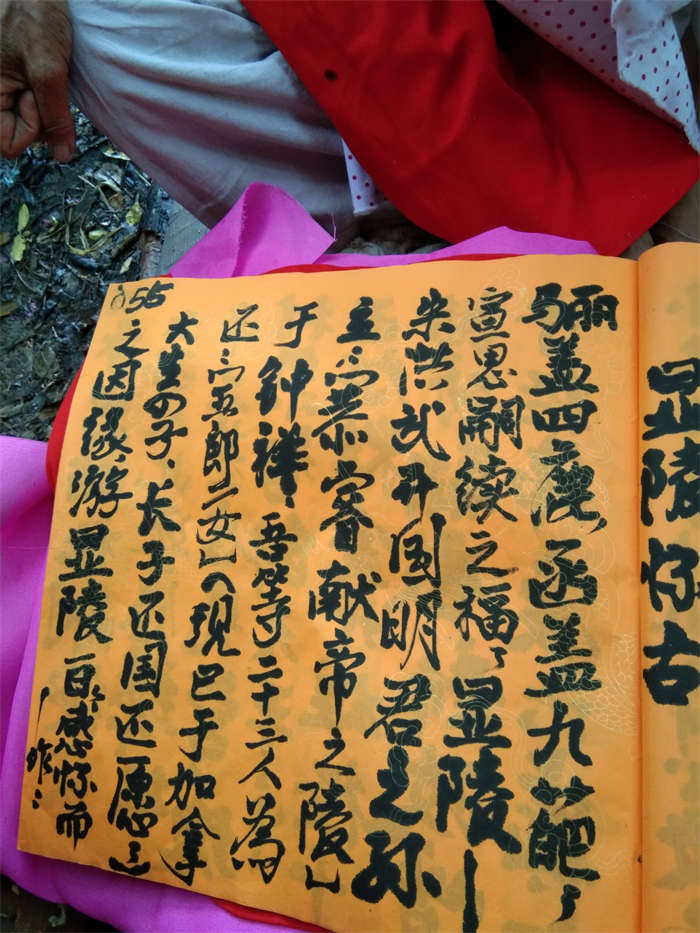 显陵怀古
骊盖四函盖九葩、
宣恩嗣续之福、显陵—
朱洪武开国明君之孙
主、宗睿献帝之陵」
于钟祥、吾等二十三人為
还五郎一女」现已于加拿
大生の子、长子还国还愿
之因缘、游显陵百感怀而
作：
055